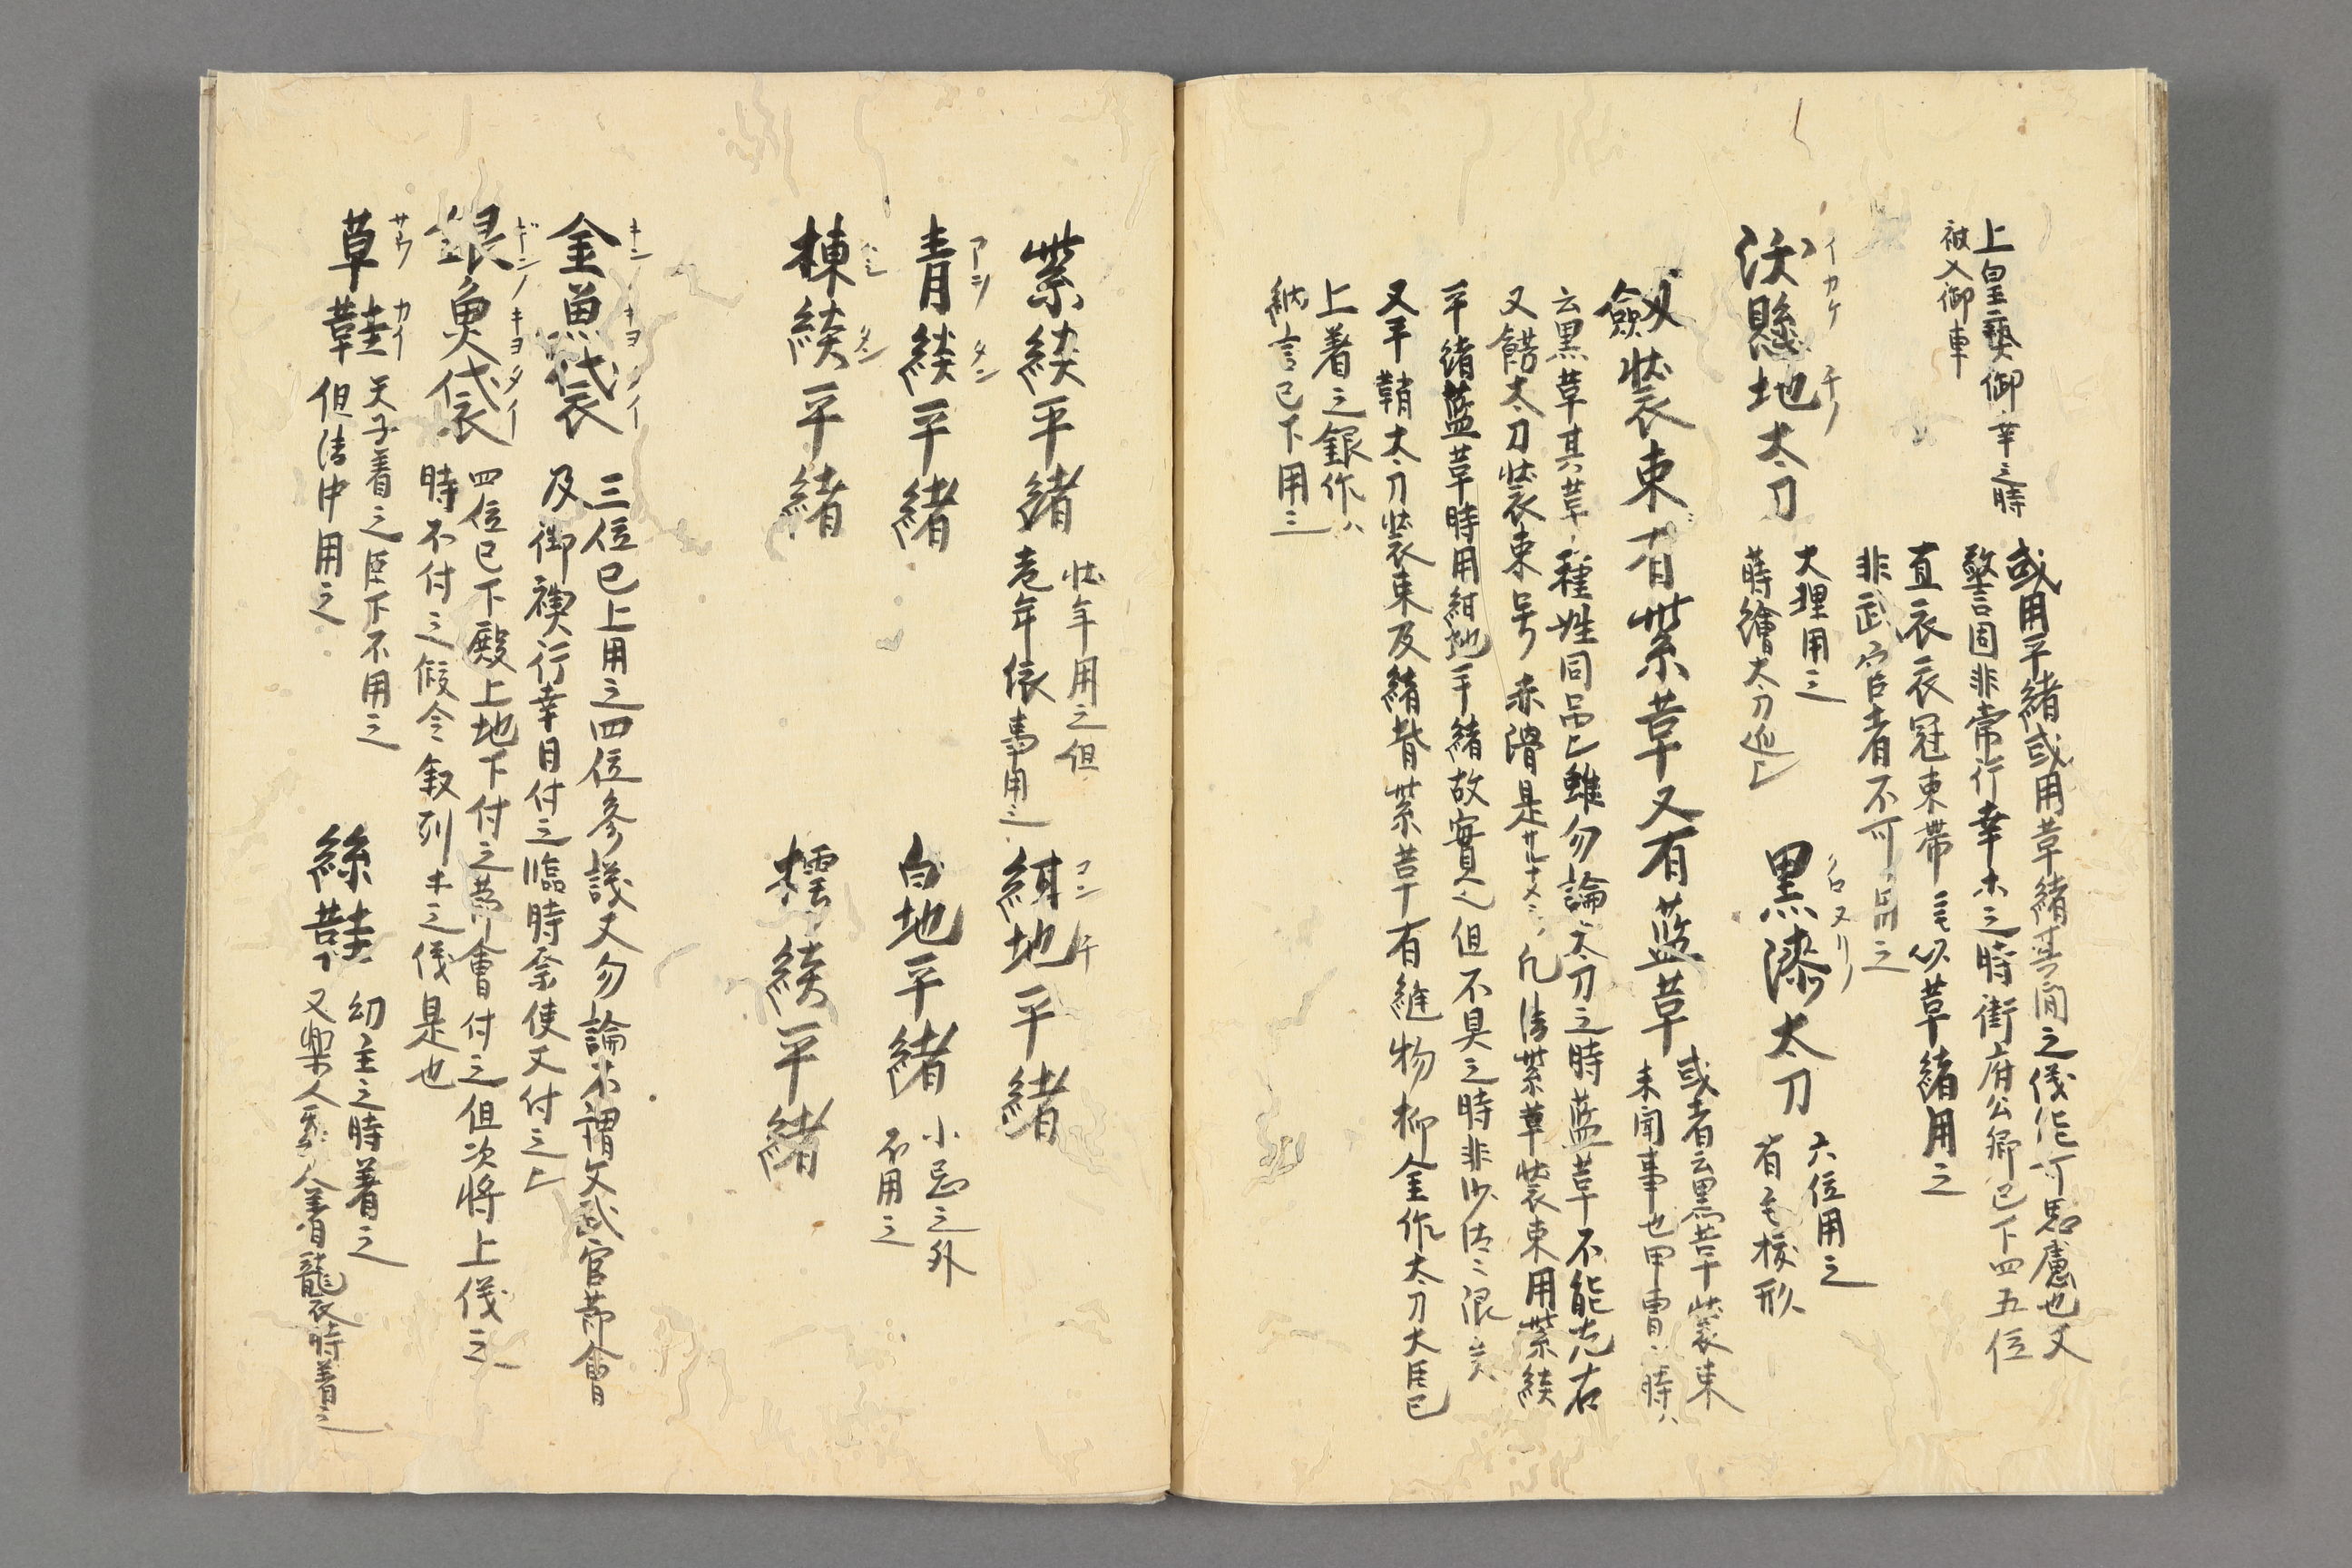 上皇藝御幸之時
被入御車
或用平緒或用革緒其間之儀能可思慮也又
警固非常行幸ホ之時衛府公卿已下四五位
直衣衣冠束帯ニモ以革緒用之
非武官者不可用之
沃懸地太刀
イカケ チノ
大理用之
蒔繪太刀也
黒漆太刀
クロヌリノ
六位用之
有毛抜形
劔装束有紫革又有藍革
或者云黒革装束
未聞事也甲冑時ハ
云黒革其革種姓同品也雖勿論太刀之時藍革不能左右
又餝太刀装束号赤滑是 凡法紫革装束用紫緂
平緒藍革時用紺地平緒故實也但不具之時非沙汰之限
又平鞘太刀装束及緒皆紫革有縫物抑金作太刀大臣已
上着之銀作ハ
納言已下用之
紫緂平緒
壮年用之但
老年依事用之
紺地平緒
コン チ
青緂平緒
アヲ タン
白地平緒
小忌之外
不用之
楝緂平緒
タン
櫨緂平緒
金魚袋
キンノ キヨ タイ
三位已上用之四位参議又勿論不謂文武官節會
及御禊行幸日付之臨時祭使又付之也
銀魚袋
ギンノ キヨ タイ
四位已下殿上地下付之節會付之但次将上儀之
時不付之假令叙列ホ之儀是也
草鞋
サウ カイ
天子着之臣下不用之
但法中用之
絲鞋
幼主之時着之
又樂人舞人着襲衣時着之